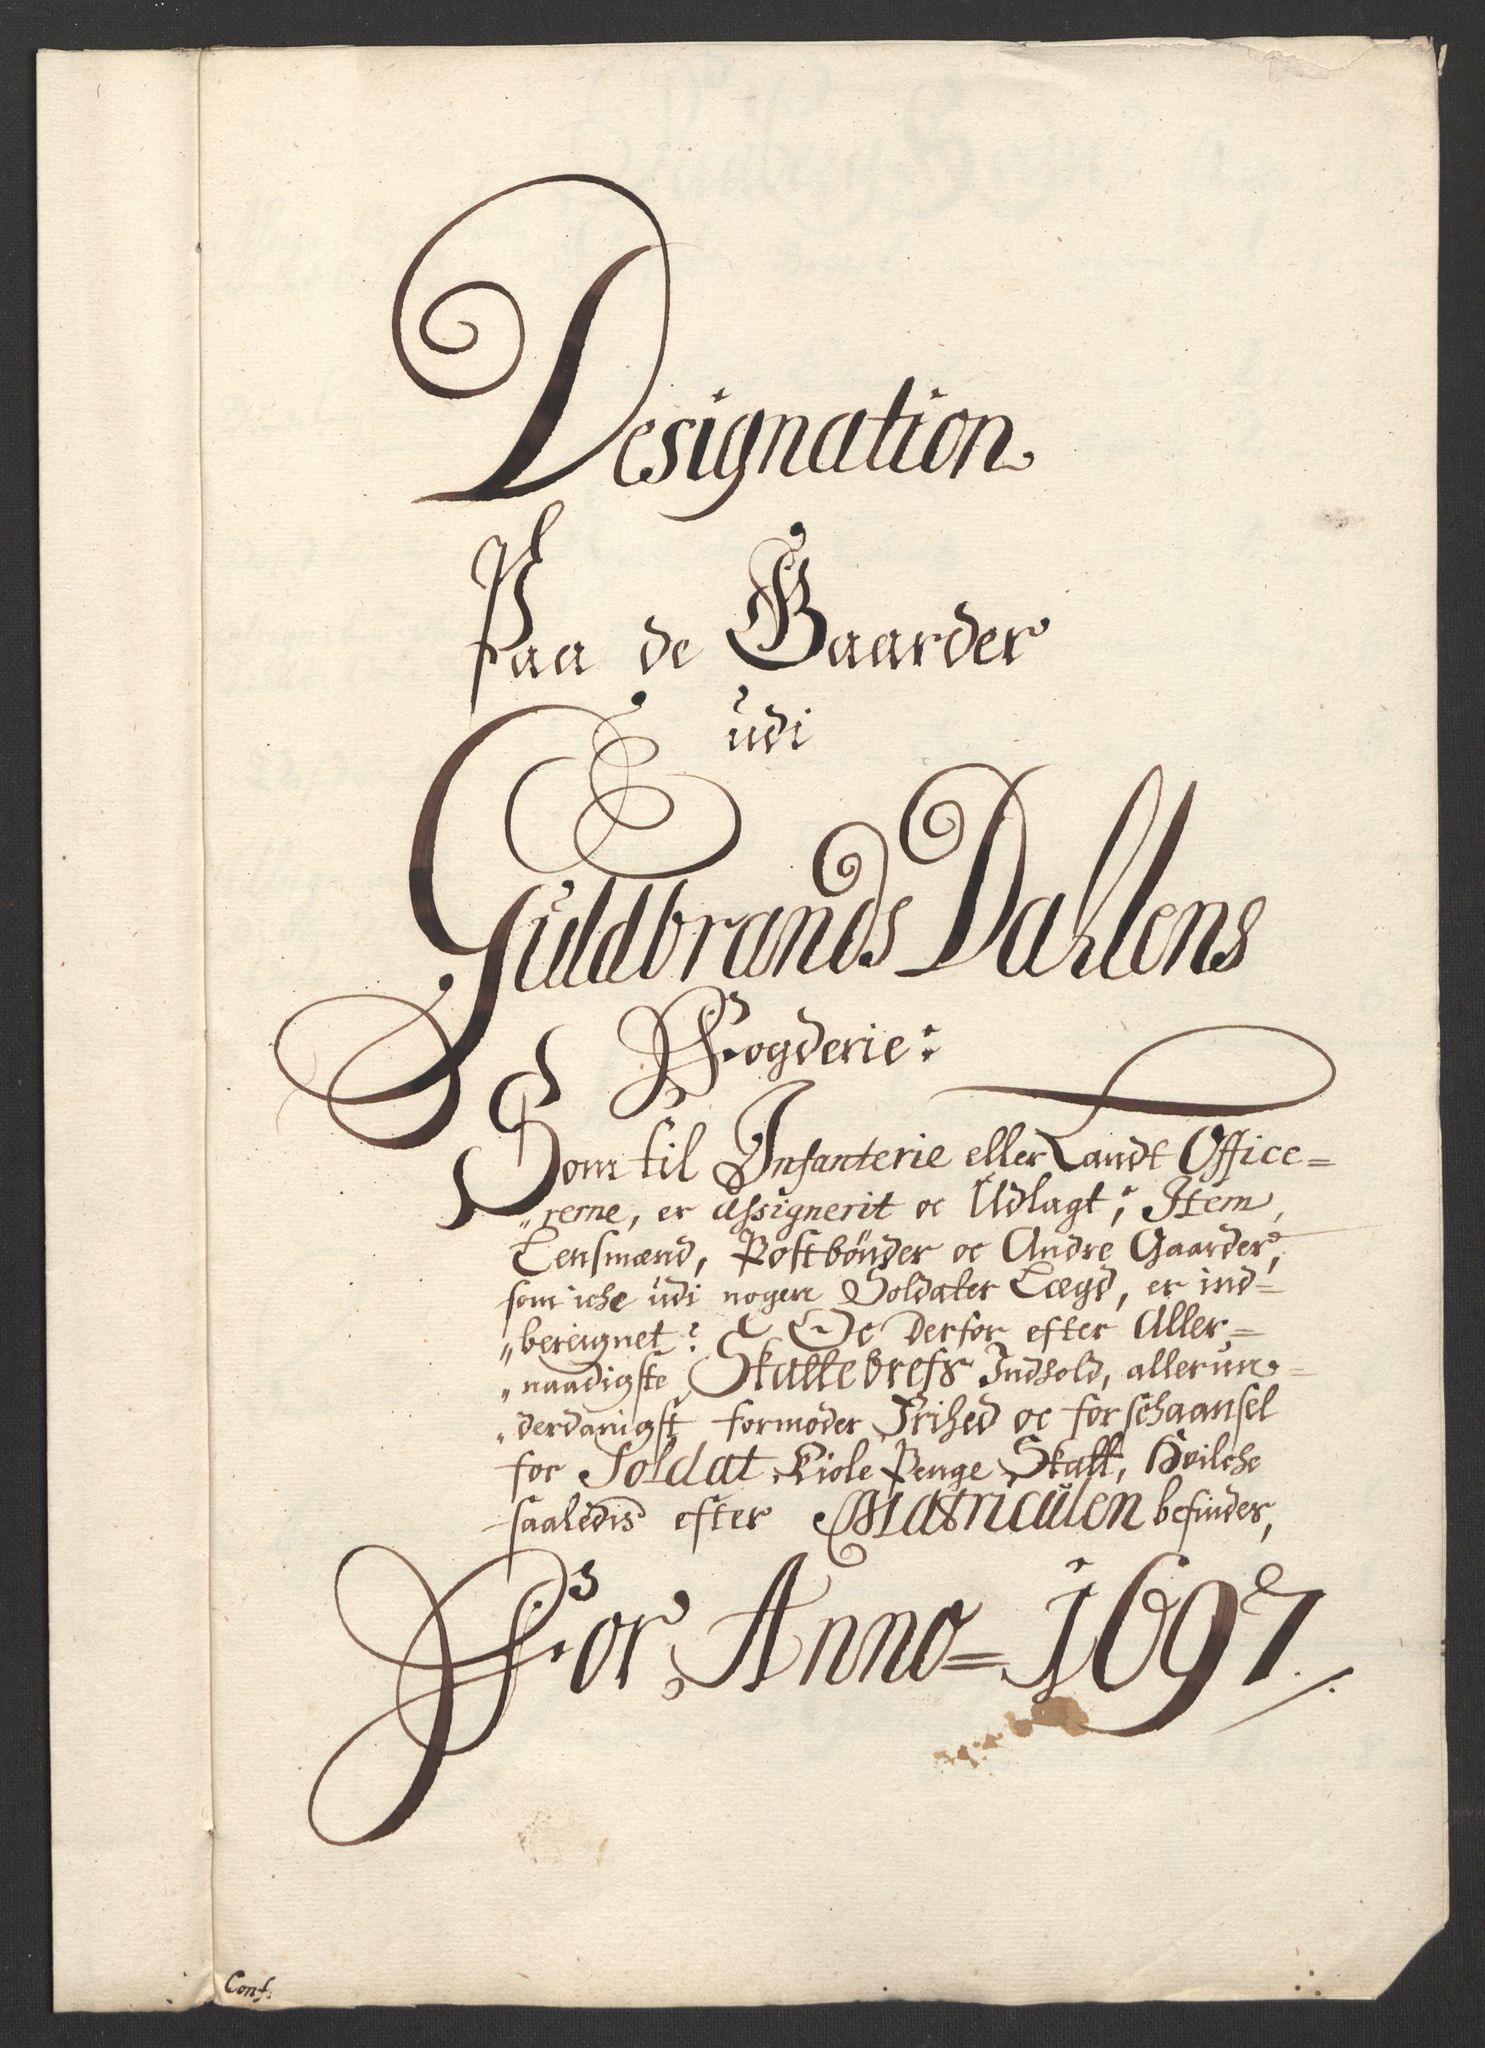 Designation
Paa de Gaarder
udi
Guldbrands Dahlens
Fogderie:
Som til Infanterie eller Landt Office=
„rerne, er Assignerit oc Udlagt; Item,
Lensmænd, Postbönder oc Andre Gaarder,
som iche udi nogen Soldater Lægd, er ind=
„bereignet: Oc derfor efter Aller=
„naadigste Skattebrefs Indhold, allerun=
„derdanigst formoder Frihed oc forschaansel
for Soldat Kiole Penge Skatt, Hvilche
saaledis efter Matriculen befindes,
For Anno=1697.
Conf: